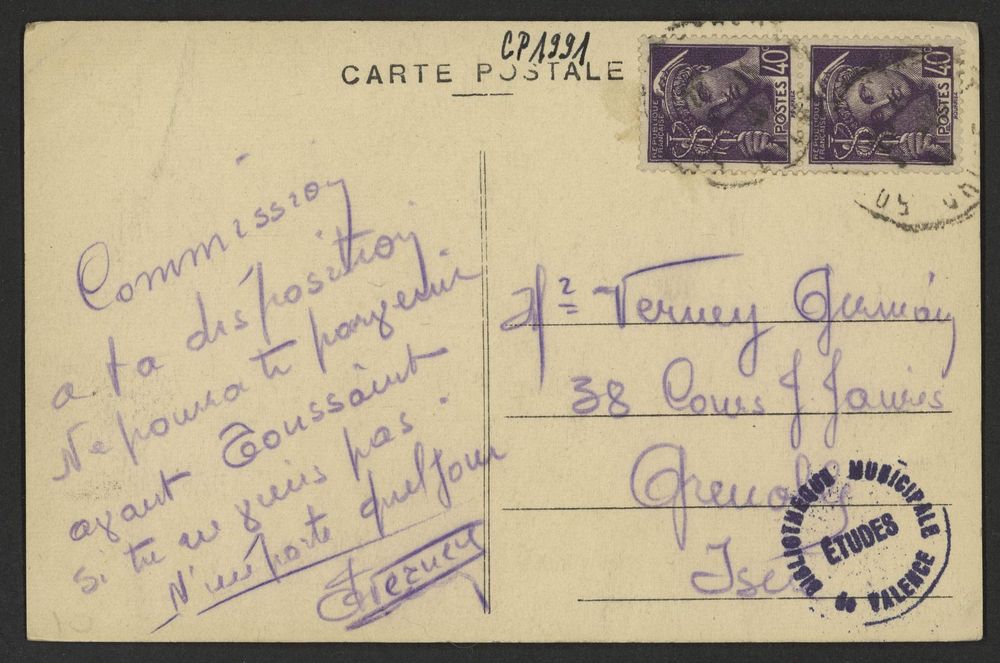 CP1991
CARTE POSTALE
RÉPUBLIQUE FRANÇAISE
POSTES 40c
RÉPUBLIQUE FRANÇAISE
POSTES 40c
Commission
a ta disposition
Ne pourra te parvenir
avant Toussaint
si tu ne viens pas.
N'importe quel jour
Verney
Mr Verney Germain
38 Cours J. Jaurès
Grenoble
Isère
BIBLIOTHÈQUE MUNICIPALE
ÉTUDES
de VALENCE